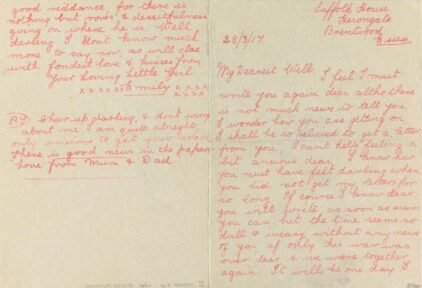 Suffolk House
Ingongate
Brentwood
Essex
28/3/17
My Dearest Will, I feel I must
write you again dear altho there
is not much news to tell you
I wonder how you are getting on
I shall be so relieved to get a letter
from you, I can't help feeling a
bit anxious dear, I know how
you must have felt darling when
you did not get my letters for
so long. Of course I know dear
you will write as soon as ever
you can but the time seems so
dull & weary without any news
of you if only this war was
over dear & we were together
again. It will be one day I
good riddance for there is
nothing but rows & deceitfulness
going on where he is. Well
darling I don't know much
more to say now, so will close
with fondest love & kisses from
Your Loving Little Girl
Emily
PS Cheer up darling, & don't worry
about me am quite alright
only anxious to get your letter
There is good news in the paper
Love from Mum & Dad